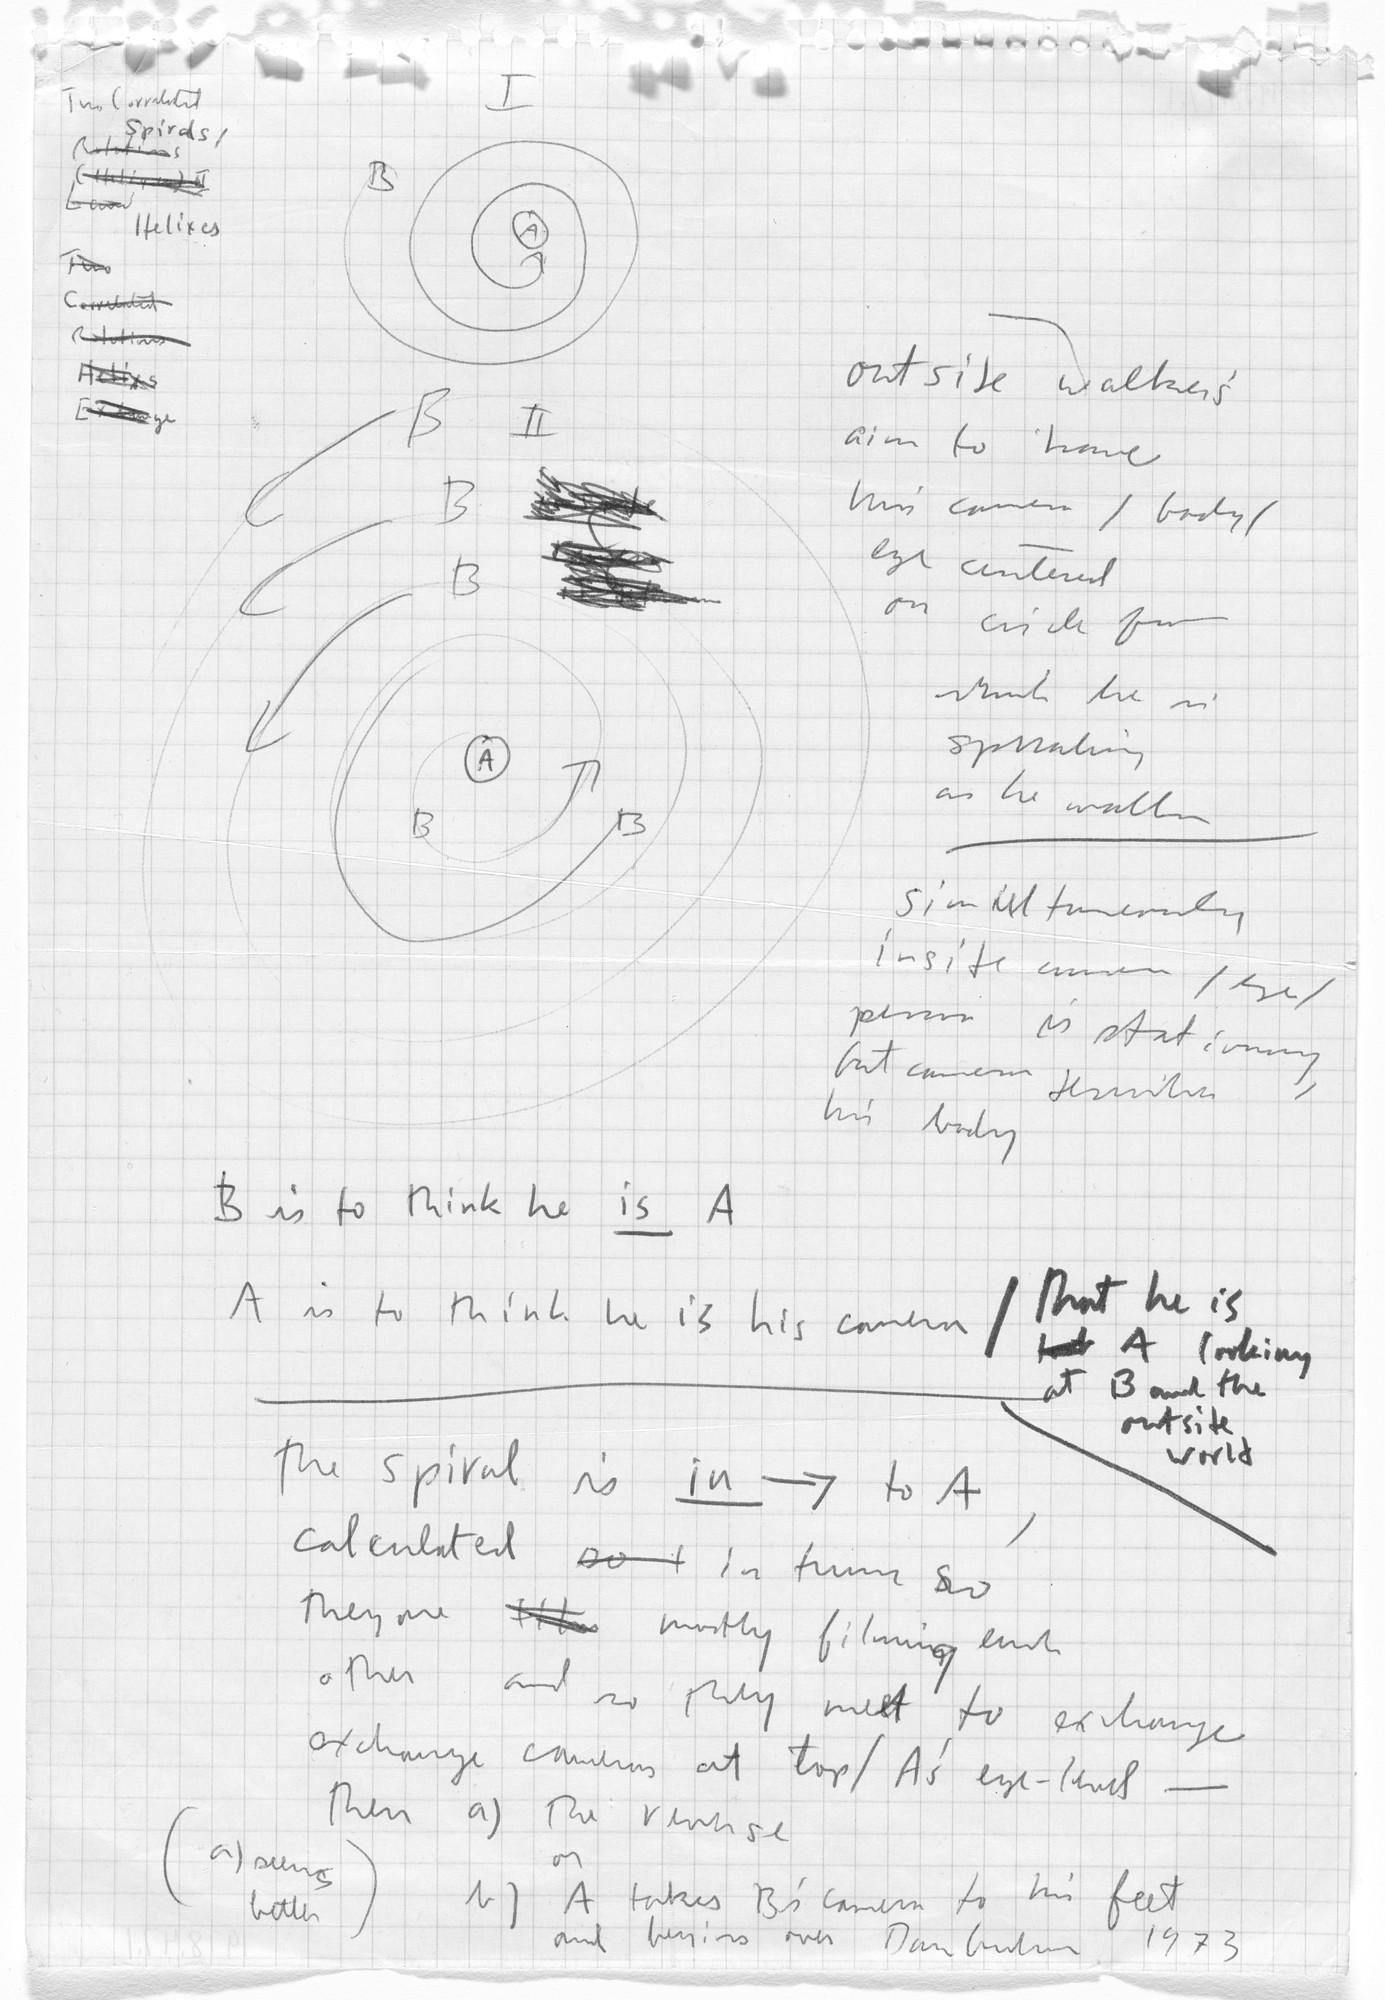 Two Correlated
Spirals/
Rotations
(Helixes) II
Helixes
Two
Correlated
Rotations
Helixs
Exchange
I
B
A
B II
B
B
A
B B
outside walker's
aim to have
his camera / body/
eye centered
on circle from
which he is
spiraling
as he walks
simultaneously
inside camera /eye/
person is stationary,
but camera
his body
B is to think he is A
A is to think he is his camera / that he is
A looking
at B and the
outside
world
the spiral is in → to A,
calculated so t in time so
they are mostly filming each
other and so they meet to exchange
exchange cameras at top/ A's eye-level —
then a) the reverse
or
(a) seems
better)
b) A takes B's camera to his feet
and begins over Dan Graham 1973